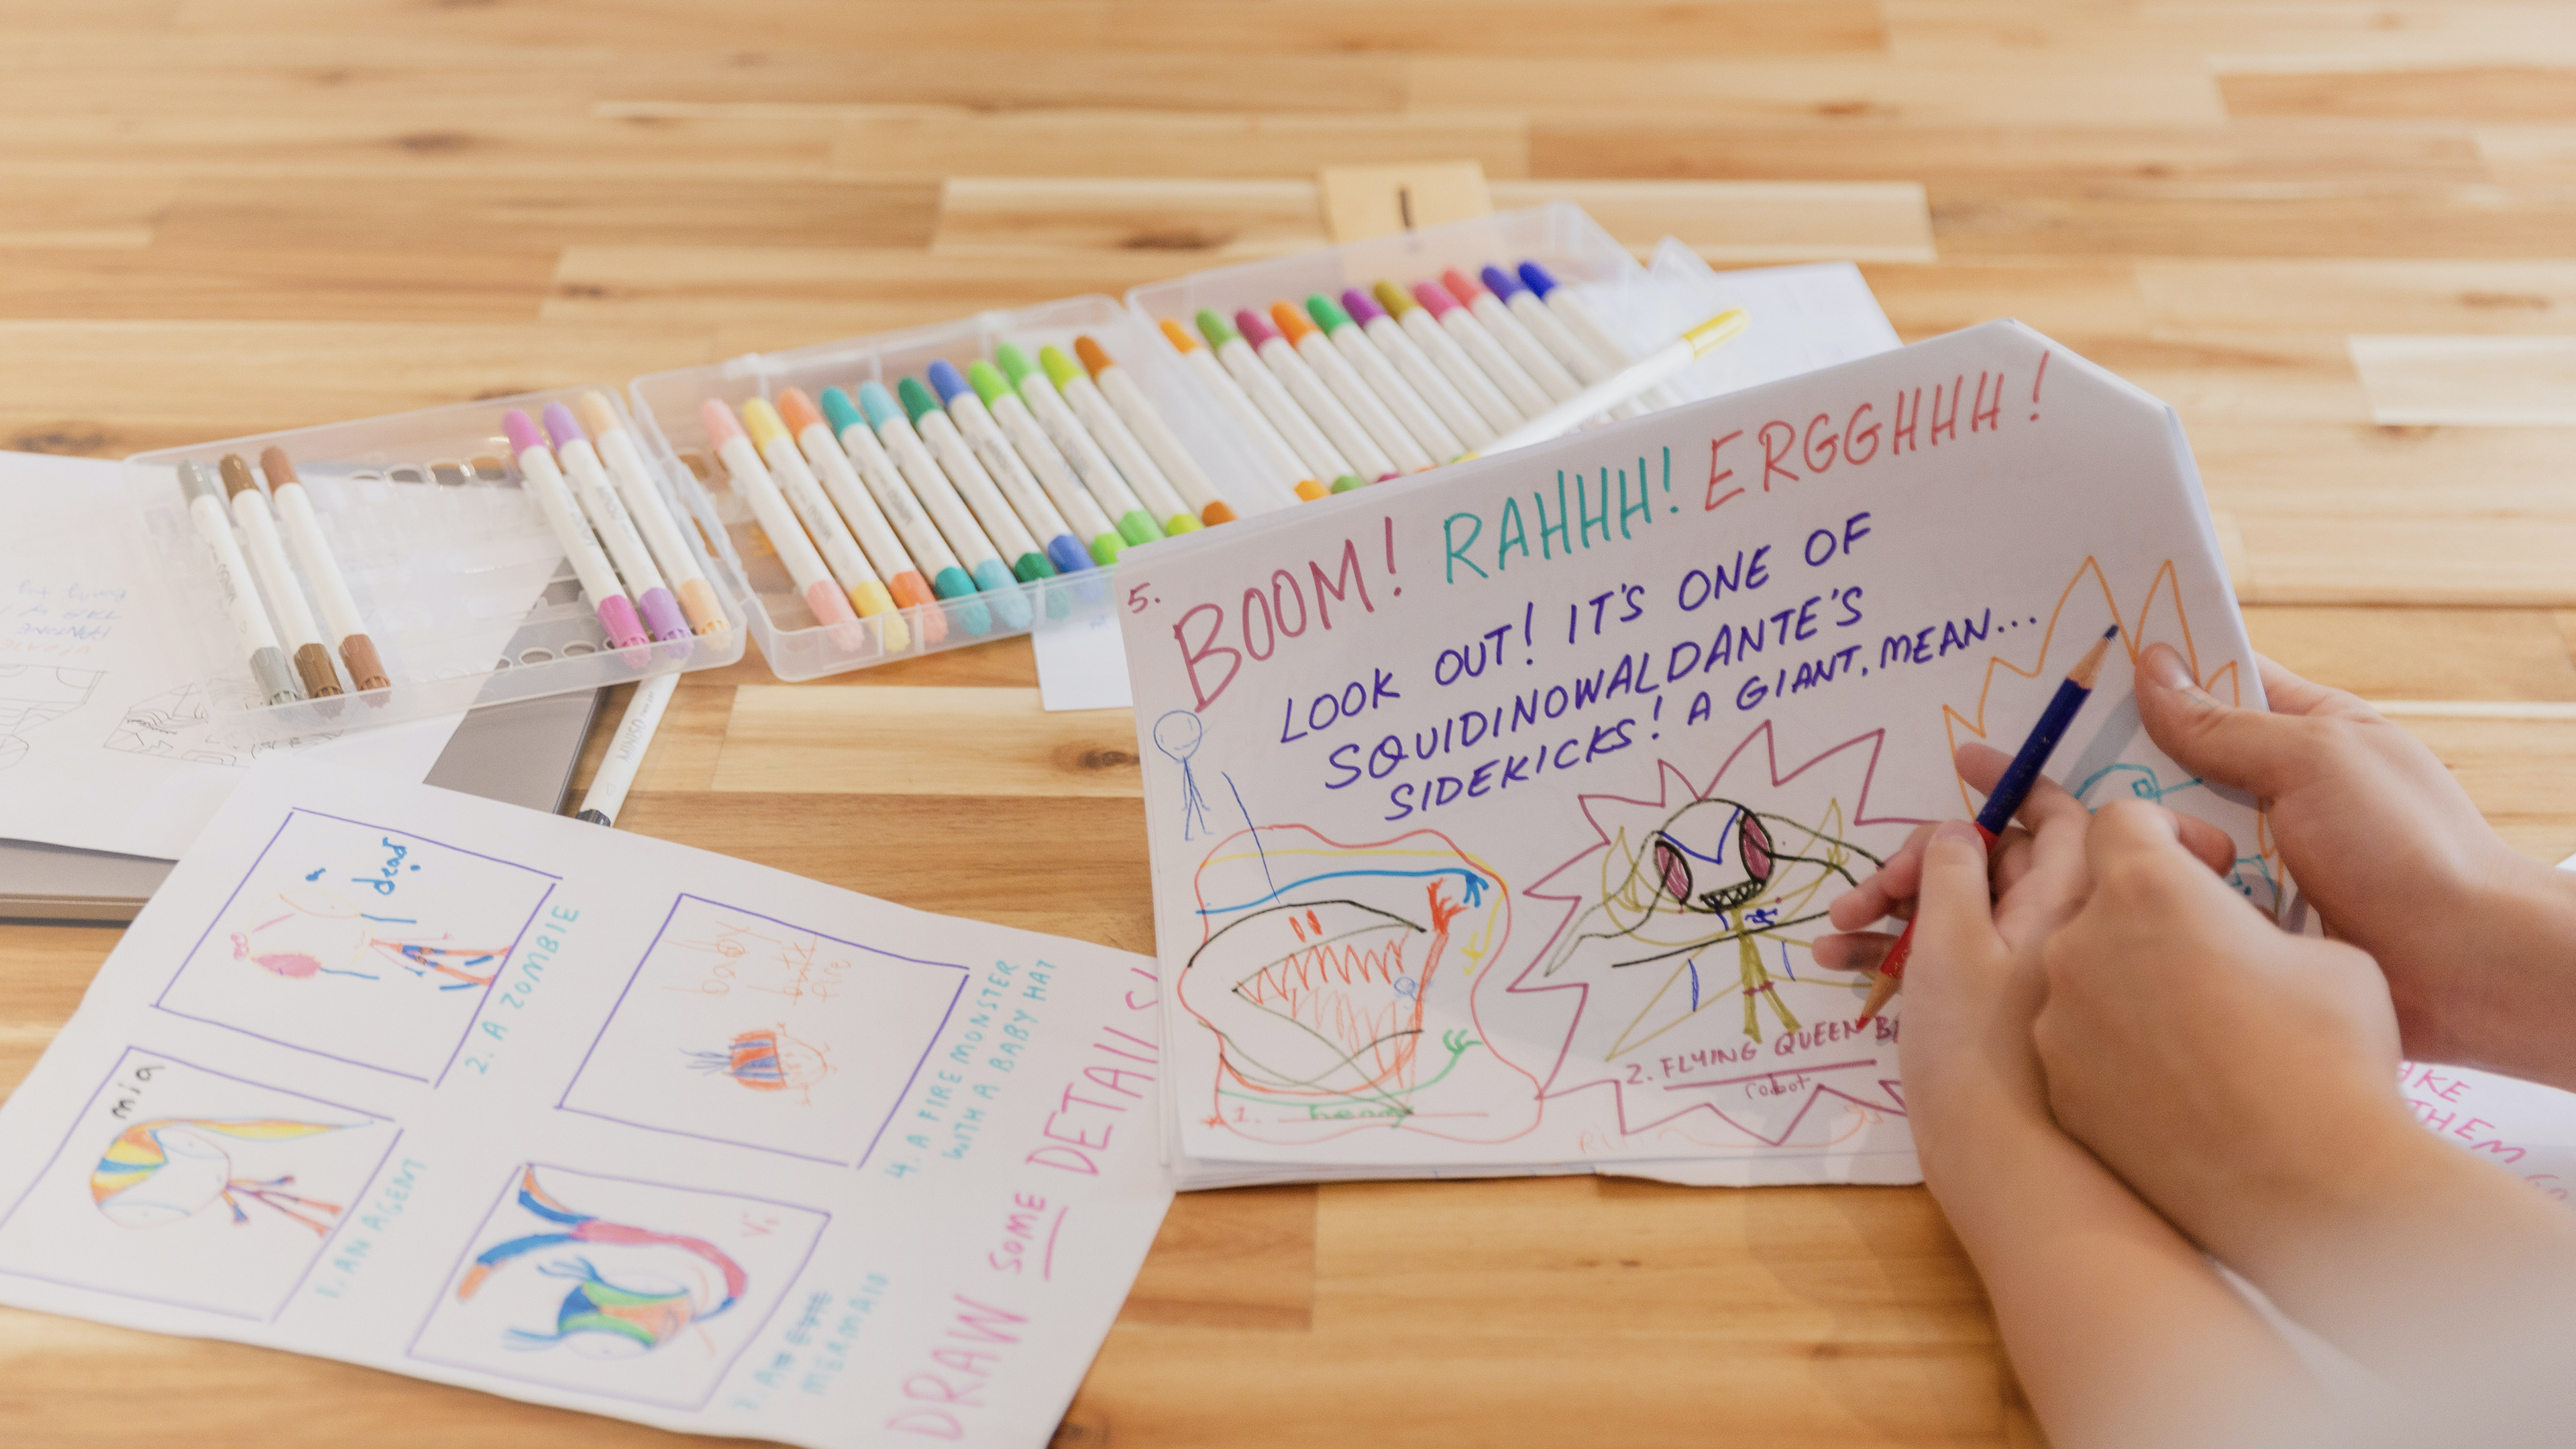 5.
BOOM! RAHHH! ERGGHHH!
LOOK OUT! IT'S ONE OF
SQUIDINOWALDANTE'S
SIDEKICKS! A GIANT, MEAN...
1.
2. FLYING QUEEN
robot
a
dead
2. A ZOMBIE
baby
4. A FIRE MONSTER
WITH A BABY HAT
mia
1. AN AGENT
MERMAID
DRAW SOME DETAILS
THEM
MINISO